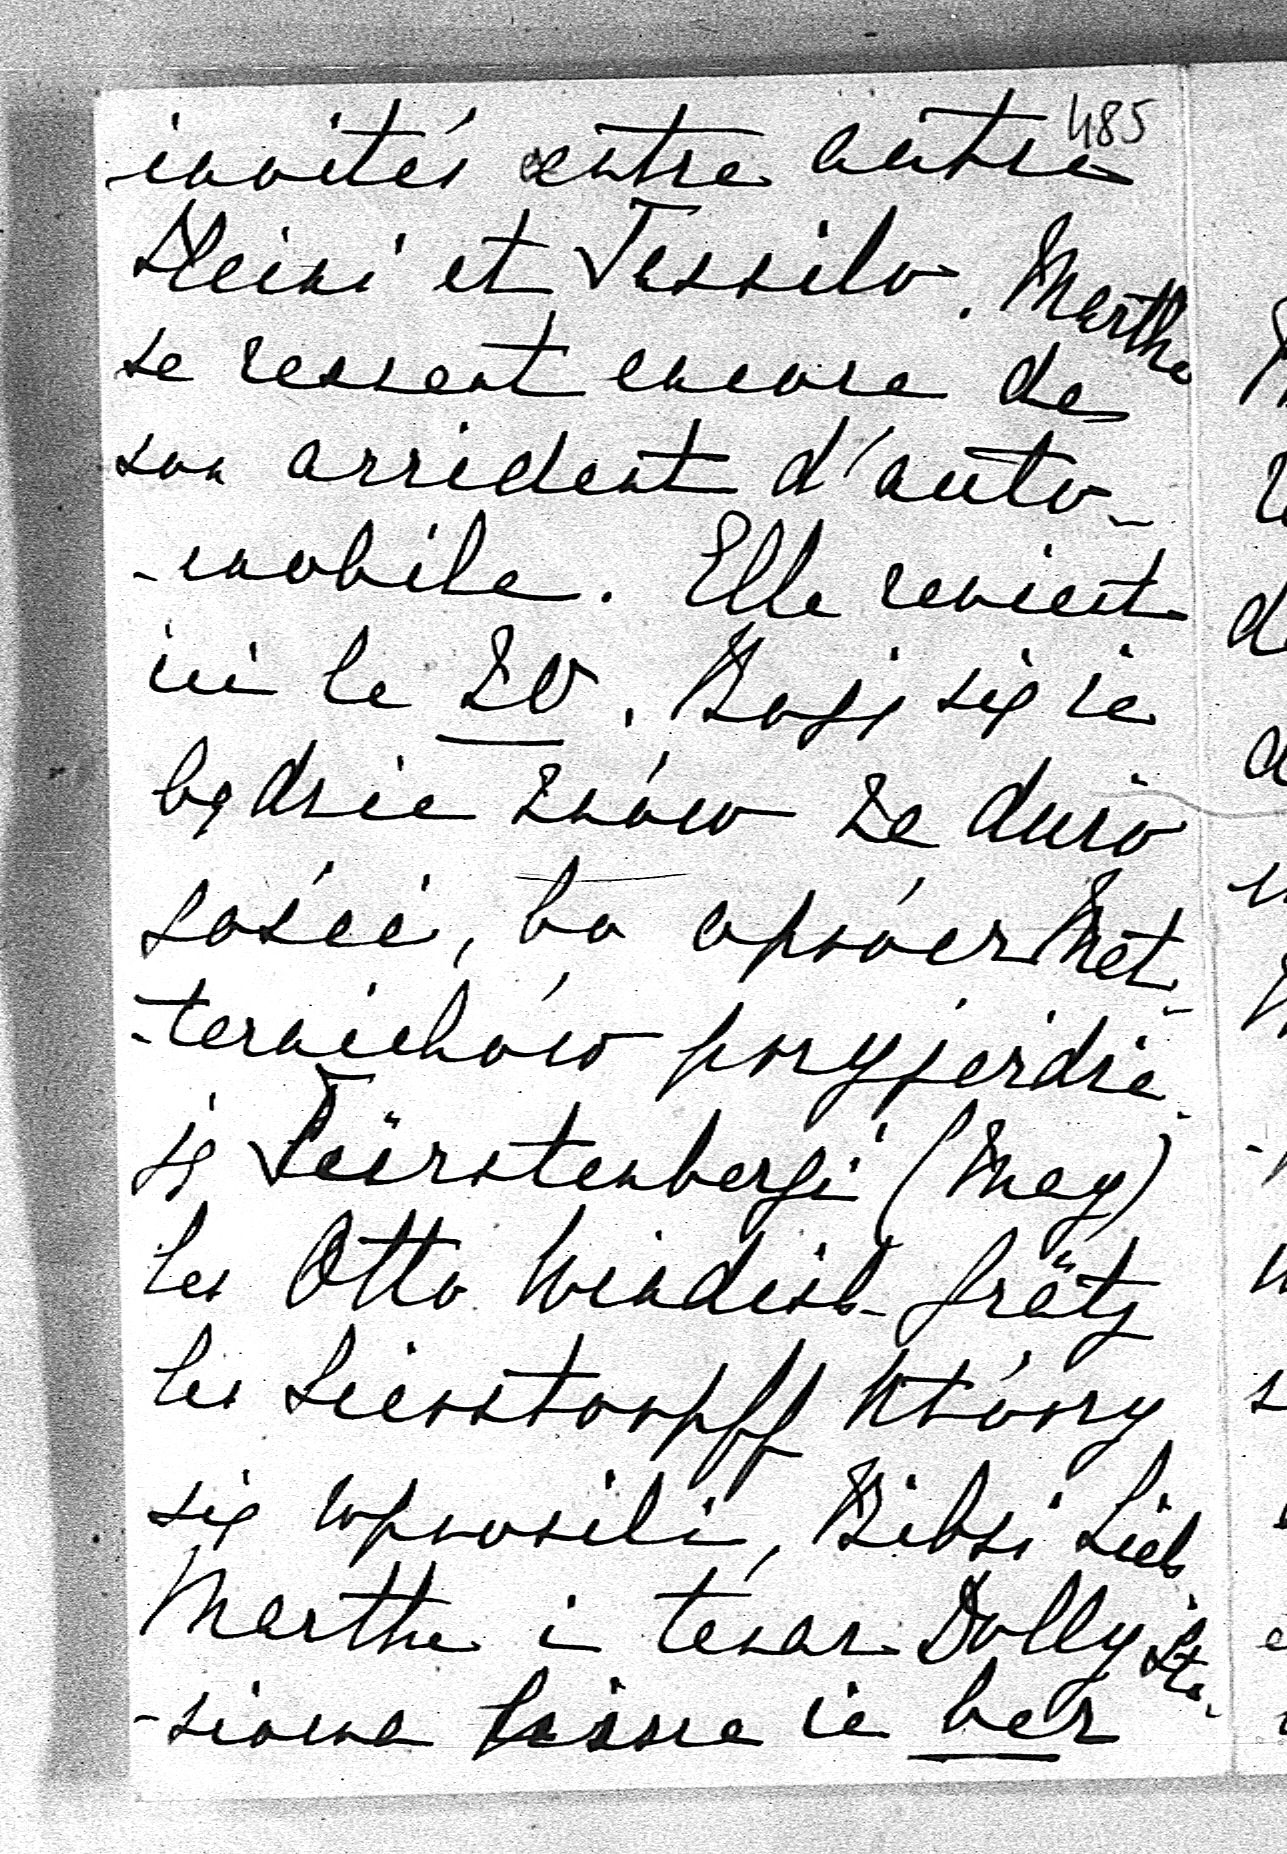 485
invités entre autre
Heini et Tassilo. Marthe
se ressent encore de
son accident d'auto-
-mobile. Elle revient
ici le 20. Boję się że
będzie znów za dużo
gości, bo oprócz Met-
-ternichów przyjeżdża-
ją Fürstenbergi (May)
les Otto Windisch-Grätz
les Sierstorpff którzy
się wprosili, Bibsi
Marthe i teraz Dolly i Sta-
-siowa pisze że bez